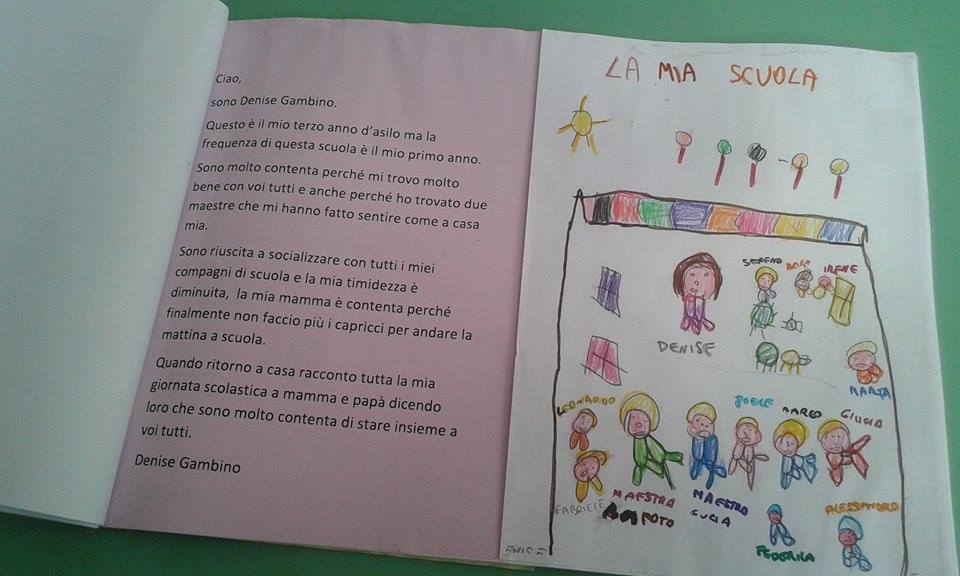 Ciao,
sono Denise Gambino.
Questo è il mio terzo anno d'asilo ma la
frequenza di questa scuola è il mio primo anno.
Sono molto contenta perché mi trovo molto
bene con voi tutti e anche perché ho trovato due
maestre che mi hanno fatto sentire come a casa
mia.
Sono riuscita a socializzare con tutti i miei
compagni di scuola e la mia timidezza è
diminuita, la mia mamma è contenta perché
finalmente non faccio più i capricci per andare la
mattina a scuola.
Quando ritorno a casa racconto tutta la mia
giornata scolastica a mamma e papà dicendo
loro che sono molto contenta di stare insieme a
voi tutti.
Denise Gambino
LA MIA SCUOLA
SERENO
IRENE
DENISE
MARTA
LEONARDO
JOELE MARCO GIULIA
GABRIELE
MAESTRA
MAESTRO
LUCIA
ALESSANDRO
FEDERICA